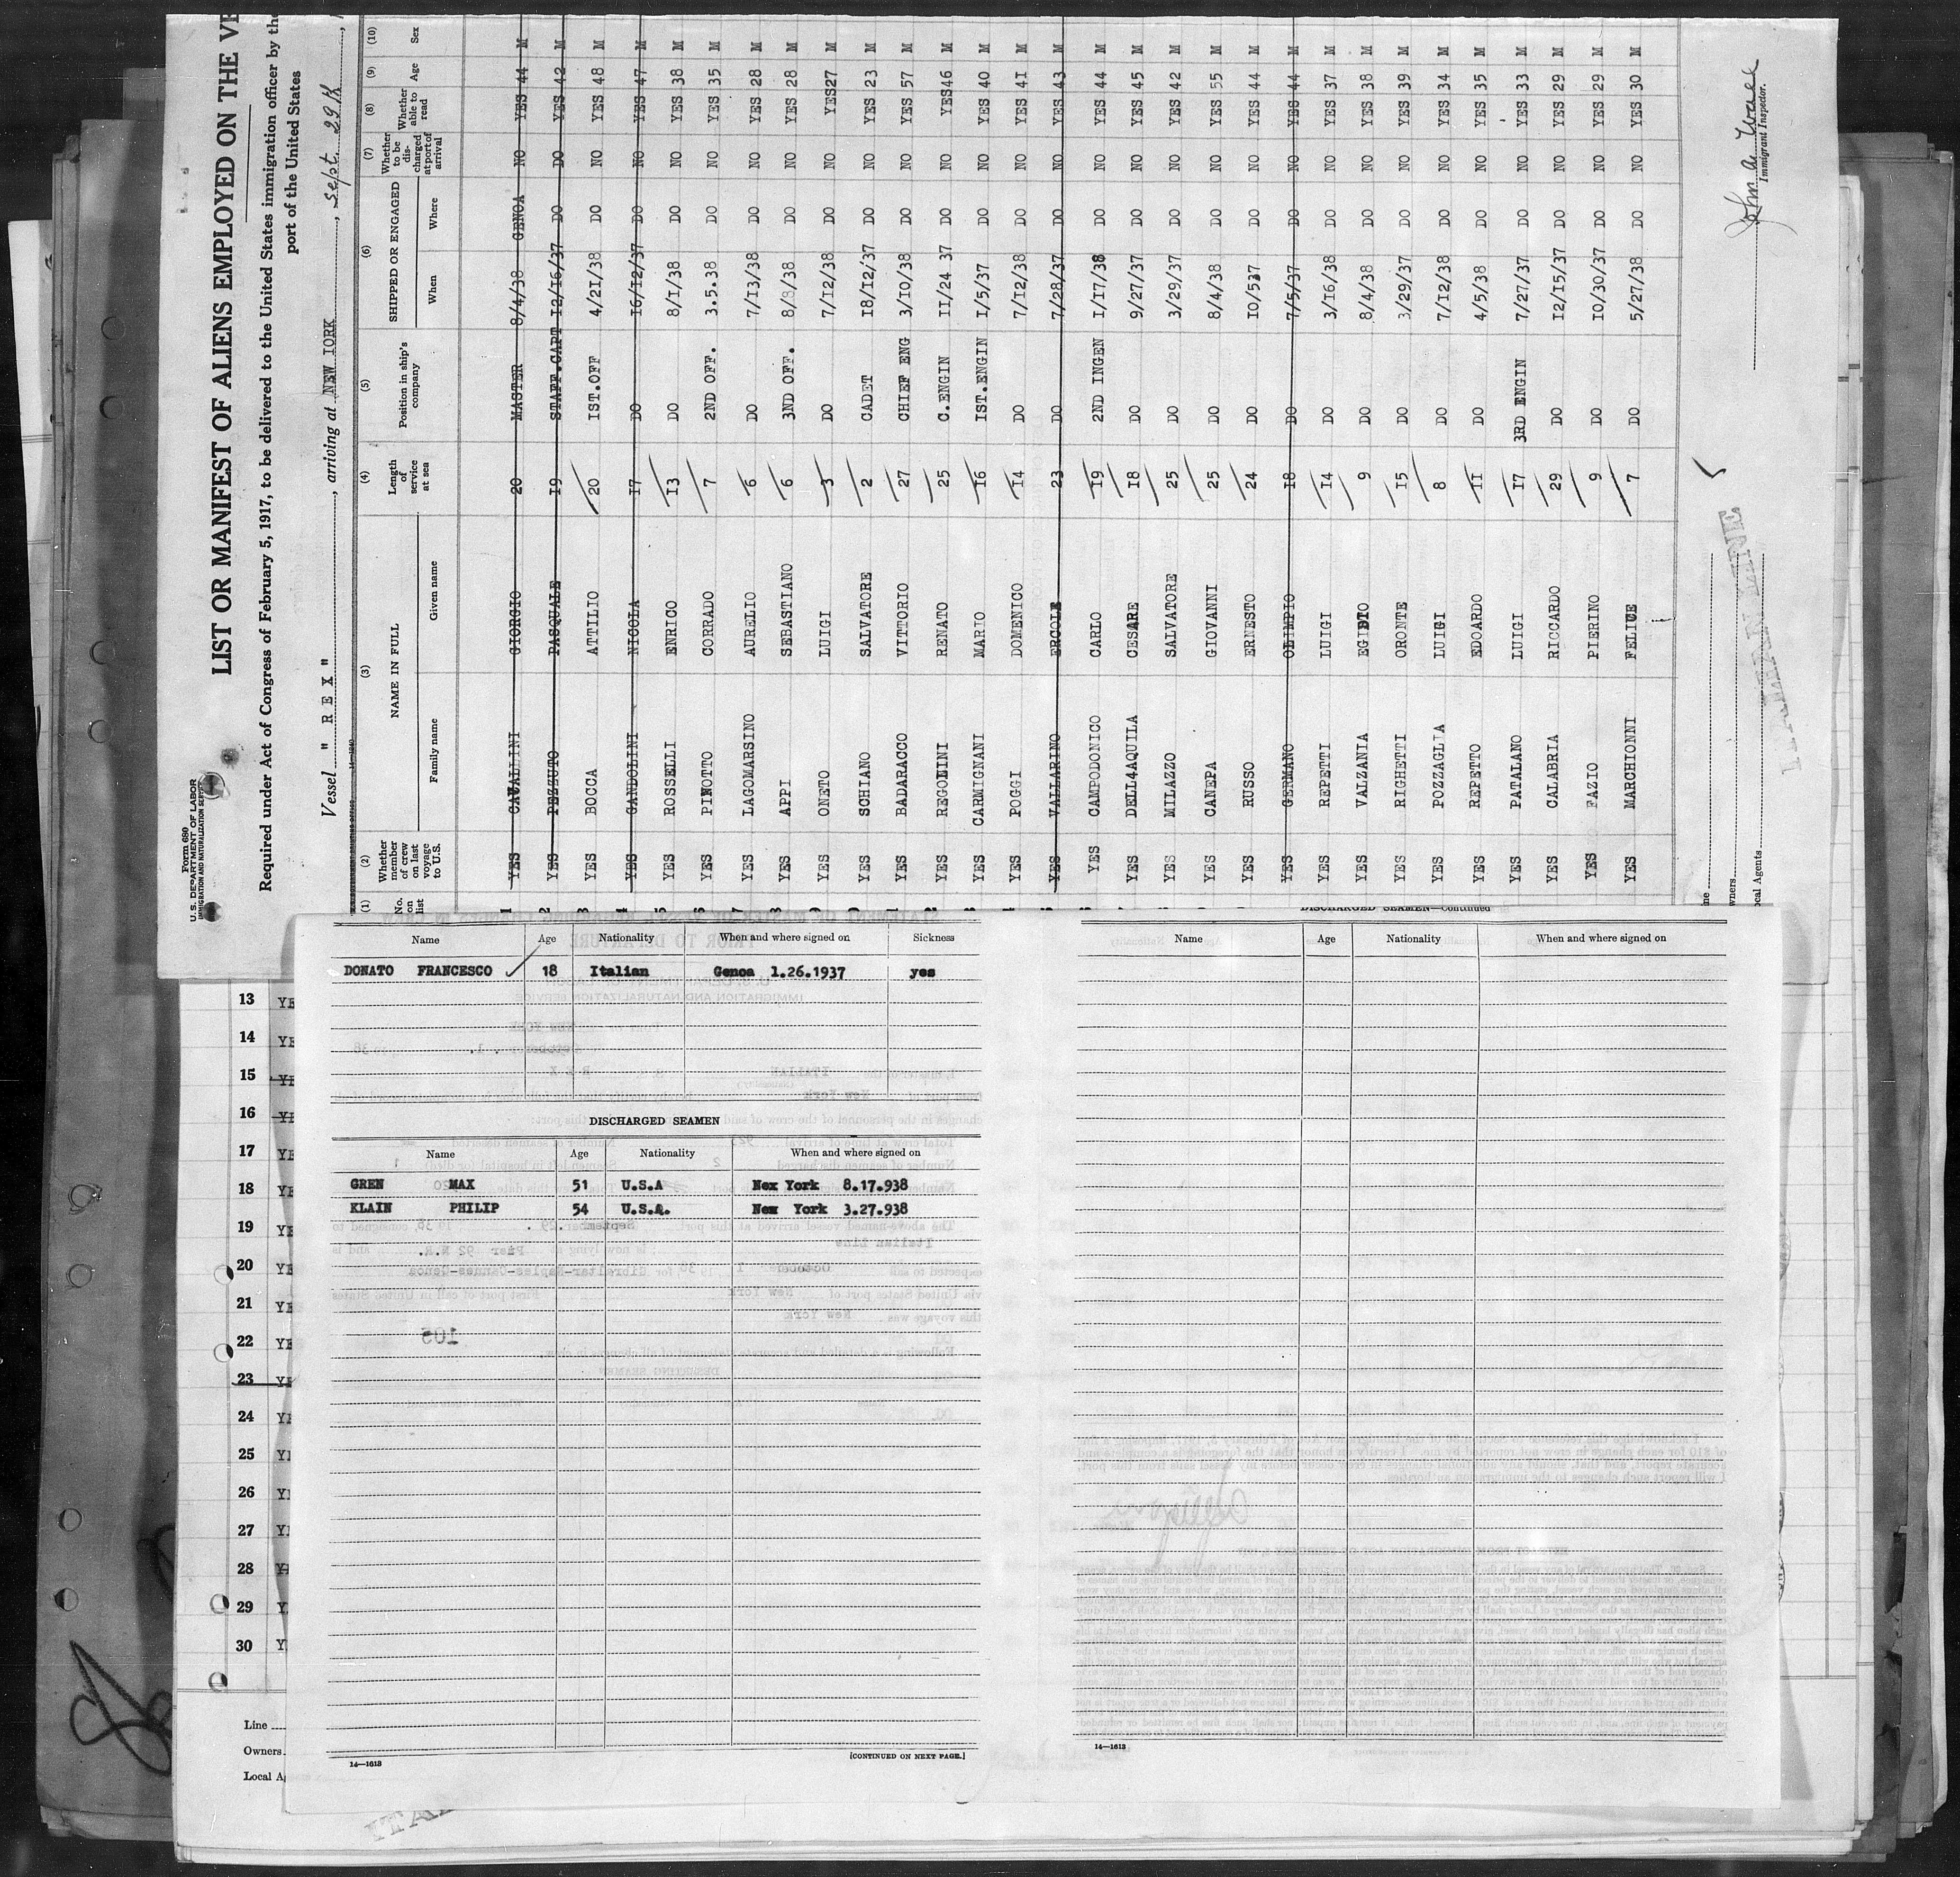 Form 680
U.S. DEPARTMENT OF LABOR
IMMIGRATION AND NATURALIZATION SERVICE
LIST OR MANIFEST OF ALIENS EMPLOYED ON THE VE
Required under Act of Congress of February 5, 1917, to be delivered to the United States immigration officer by the
port of the United States
Vessel " R E X " , arriving at NEW YORK , Sept. 29th ,
(1) (2) (3) (4) (5) (6) (7) (8) (9) (10)
No. on list Whether member of crew on last voyage to U.S. NAME IN FULL Family name Given name Length of service at sea Position in ship's company SHIPPED OR ENGAGED When Where Whether to be discharged at port of arrival Whether able to read Age Sex
1 YES CAVALLINI GIORGIO 20 MASTER 8/4/38 GENOA NO YES 44 M
2 YES PEZZUTO PASQUALE 19 STAFF.CAPT 12/16/37 DO DO YES 42 M
3 YES BOCCA ATTILIO 20 IST.OFF 4/21/38 DO NO YES 48 M
4 YES GANDOLINI NICOLA 17 DO 16/12/37 DO NO YES 47 M
5 YES ROSSELLI ENRICO 13 DO 8/1/38 DO NO YES 38 M
6 YES PINOTTO CORRADO 7 2ND OFF. 3.5.38 DO NO YES 35 M
7 YES LAGOMARSINO AURELIO 6 DO 7/13/38 DO NO YES 28 M
8 YES APPI SEBASTIANO 6 3ND OFF. 8/8/38 DO NO YES 28 M
9 YES ONETO LUIGI 3 DO 7/12/38 DO NO YES27 M
YES SCHIANO SALVATORE 2 CADET 18/12/37 DO NO YES 23 M
YES BADARACCO VITTORIO 27 CHIEF ENG 3/10/38 DO NO YES 57 M
YES REGOLINI RENATO 25 C.ENGIN 11/24 37 DO NO YES46 M
YES CARMIGNANI MARIO 16 IST.ENGIN 1/5/37 DO NO YES 40 M
YES POGGI DOMENICO 14 DO 7/12/38 DO NO YES 41 M
YES VALLARINO ERCOLE 23 DO 7/28/37 DO NO YES 43 M
YES CAMPODONICO CARLO 19 2ND INGEN 1/17/38 DO NO YES 44 M
YES DELL4AQUILA CESARE 18 DO 9/27/37 DO NO YES 45 M
YES MILAZZO SALVATORE 25 DO 3/29/37 DO NO YES 42 M
YES CANEPA GIOVANNI 25 DO 8/4/38 DO NO YES 55 M
YES RUSSO ERNESTO 24 DO 10/537 DO NO YES 44 M
YES GERMANO OLIMPIO 18 DO 7/5/37 DO NO YES 44 M
YES REPETTI LUIGI 14 DO 3/16/38 DO NO YES 37 M
YES VALZANIA EGIDIO 9 DO 8/4/38 DO NO YES 38 M
YES RIGHETTI ORONTE 15 DO 3/29/37 DO NO YES 39 M
YES POZZAGLIA LUIGI 8 DO 7/12/38 DO NO YES 34 M
YES REPETTO EDOARDO 11 DO 4/5/38 DO NO YES 35 M
YES PATALANO LUIGI 17 3RD ENGIN 7/27/37 DO NO YES 33 M
YES CALABRIA RICCARDO 29 DO 12/15/37 DO NO YES 29 M
YES FAZIO PIERINO 9 DO 10/30/37 DO NO YES 29 M
YES MARCHIONNI FELICE 7 DO 5/27/38 DO NO YES 30 M
ITALIAN LINE
Immigrant Inspector.
ocal Agents
Name Age Nationality When and where signed on Sickness
DONATO FRANCESCO 18 Italian Genoa 1.26.1937 yes
DISCHARGED SEAMEN
Name Age Nationality When and where signed on
GREN MAX 51 U.S.A Nex York 8.17.938
KLAIN PHILIP 54 U.S.A. New York 3.27.938
14—1613
[CONTINUED ON NEXT PAGE.]
DISCHARGED SEAMEN—Continued
Name Age Nationality When and where signed on
14—1613
13 YE
14 YE
15 YE
16 YE
17 YE
18 YE
19 YE
20 YE
21 YE
22 YE
23 YE
24 YE
25 YE
26 YE
27 YE
28 YE
29 YE
30 YE
Line
Owners
Local A
ITAL